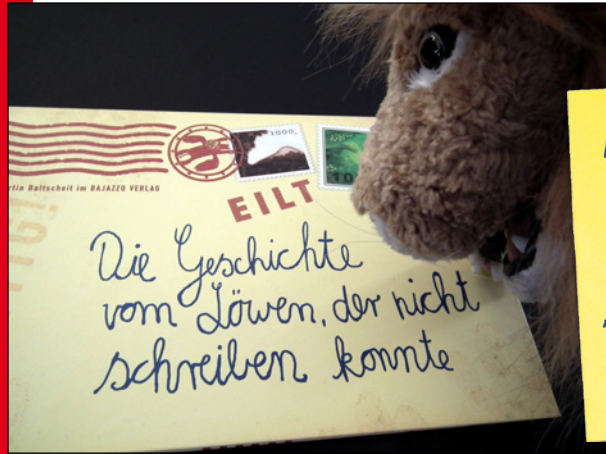 1000,
rtin Baltscheit im BAJAZZO VERLAG
EILT
Die Geschichte
vom Löwen, der nicht
schreiben konnte